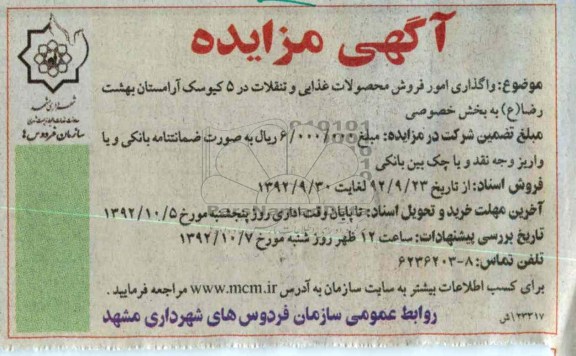 آگهی مزایده
موضوع: واگذاری امور فروش محصولات غذایی و تنقلات در ۵ کیوسک آرامستان بهشت
رضا(ع) به بخش خصوصی
مبلغ تضمین شرکت در مزایده: مبلغ ۶/۰۰۰/۰۰۰ ریال به صورت ضمانتنامه بانکی و یا
واریز وجه نقد و یا چک بین بانکی
فروش اسناد: از تاریخ ۹۲/۹/۲۳ لغایت ۱۳۹۲/۹/۳۰
آخرین مهلت خرید و تحویل اسناد: تا پایان وقت اداری روز پنجشنبه مورخ ۱۳۹۲/۱۰/۵
تاریخ بررسی پیشنهادات: ساعت ۱۲ ظهر روز شنبه مورخ ۱۳۹۲/۱۰/۷
تلفن تماس: ۸-۶۲۳۶۲۰۳
برای کسب اطلاعات بیشتر به سایت سازمان به آدرس www.mcm.ir مراجعه فرمایید .
روابط عمومی سازمان فردوس های شهرداری مشهد
۱۲۳۳۱۷/ش
شهرداری مشهد
سازمان فردوس ها